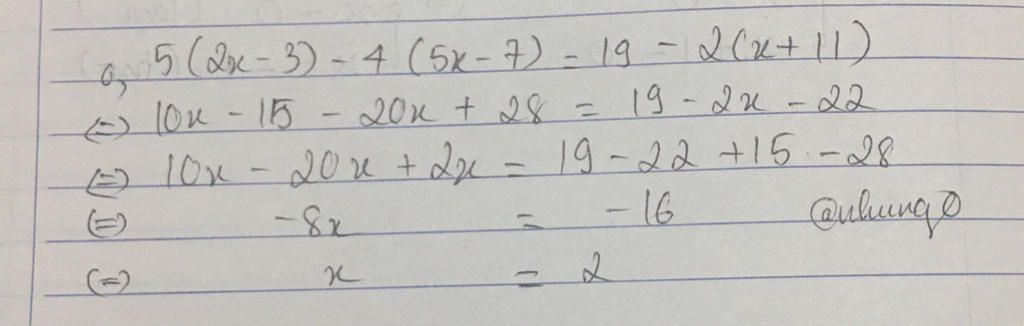 a, 5(2x-3) - 4(5x-7) = 19 - 2(x+11)
(=) 10x - 15 - 20x + 28 = 19 - 2x - 22
(=) 10x - 20x + 2x = 19 - 22 + 15 - 28
(=) -8x = -16 @nhung0
(=) x = 2